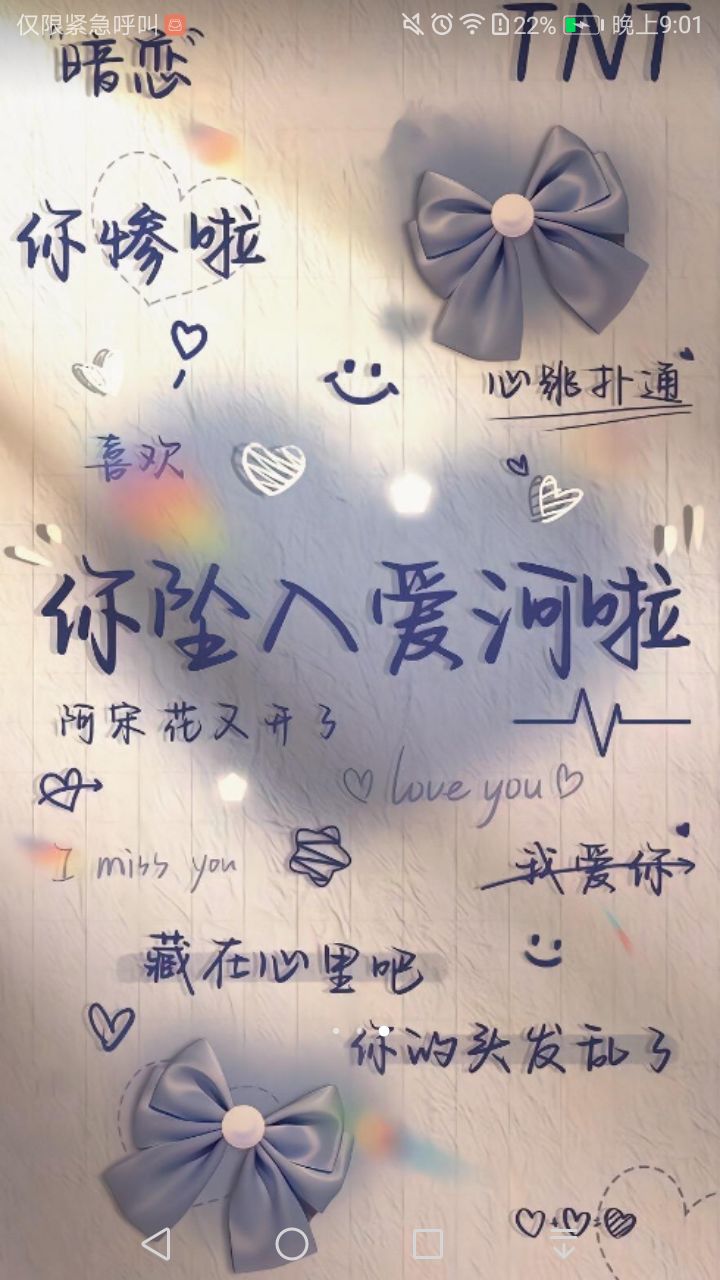 仅限紧急呼叫 22% 晚上9:01
"暗恋"
TNT
你惨啦
心跳扑通
喜欢
你坠入爱河啦
阿宋花又开了
love you
I miss you
我爱你
藏在心里吧
你的头发乱了